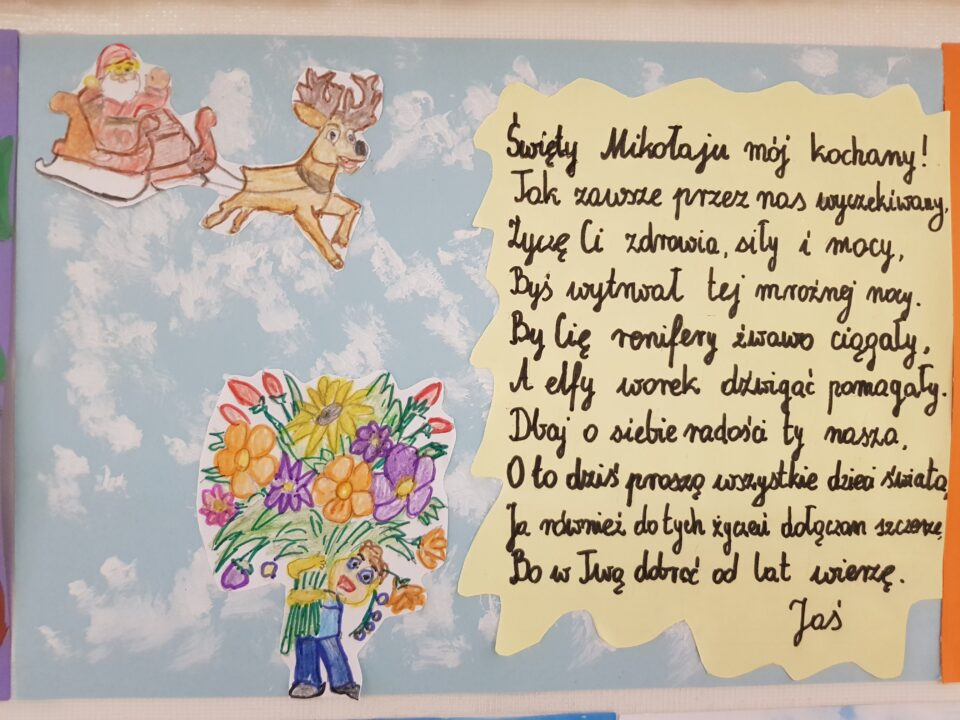 Święty Mikołaju mój kochany!
Jak zawsze przez nas wyczekiwany,
Życzę Ci zdrowia, siły i mocy,
Byś wytrwał tej mroźnej nocy.
By Cię renifery żwawo ciągały,
A elfy worek dźwigać pomagały.
Dbaj o siebie radości ty nasza,
O to dziś proszą wszystkie dzieci świata,
Ja również do tych życzeń dołączam szczerze,
Bo w Twą dobroć od lat wierzę.
Jaś